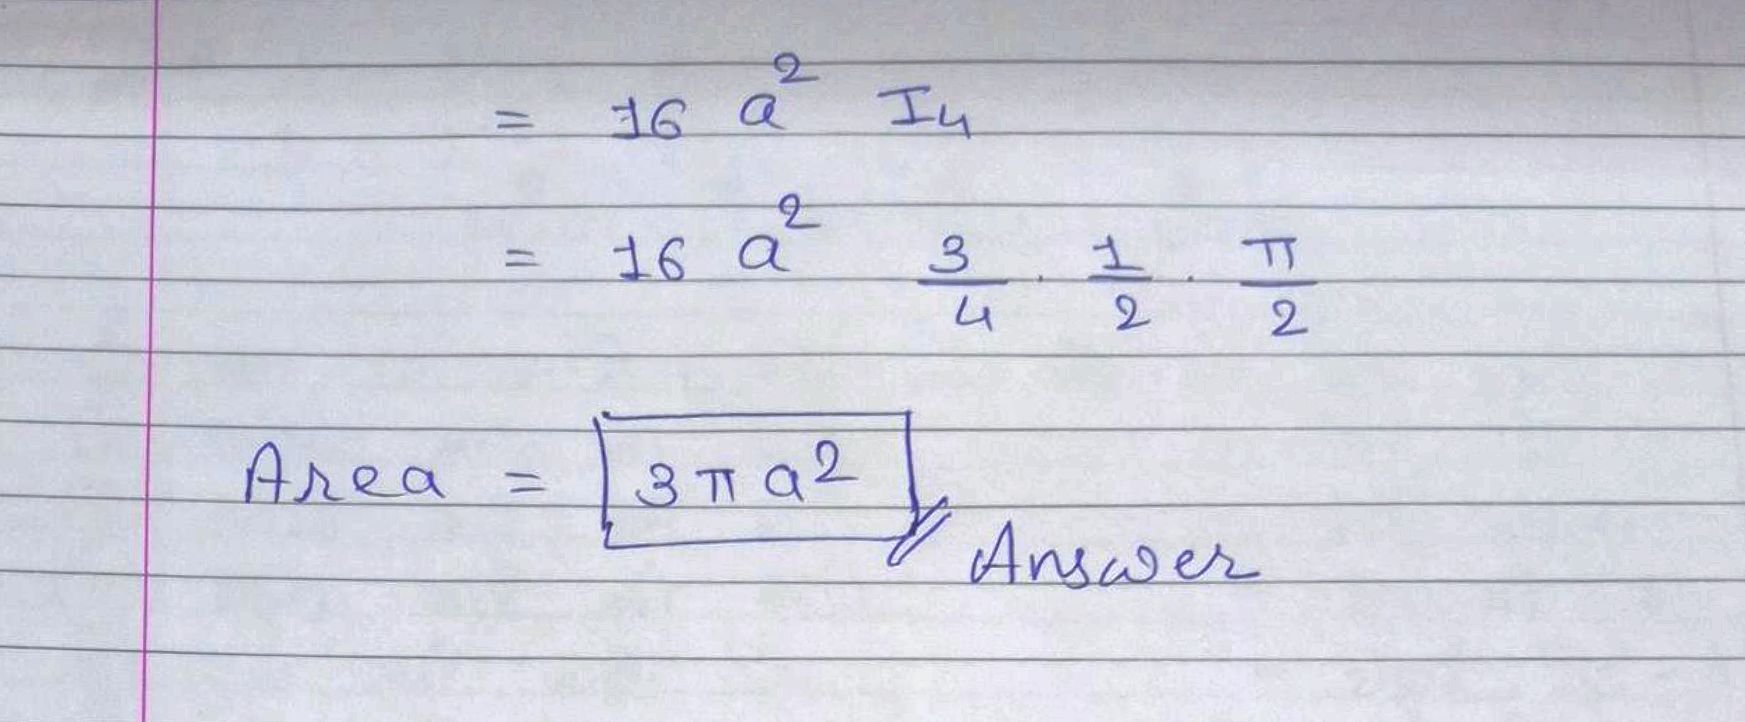 = 16 a² I₄
= 16 a² 3/4 · 1/2 · π/2
Area = 3πa²
Answer